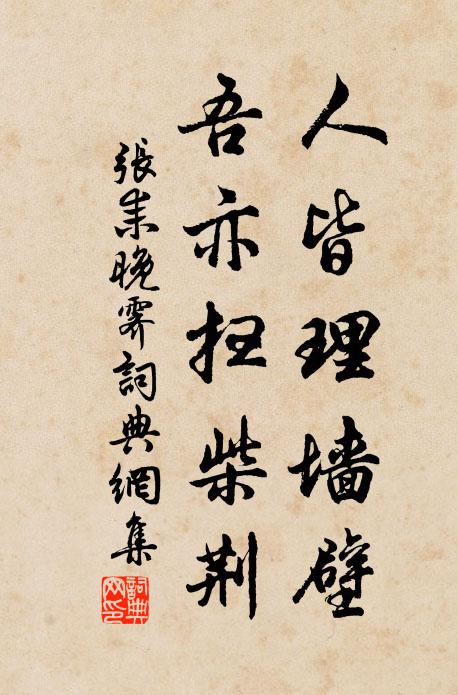 人皆理墙壁
吾亦扫柴荆
張耒晚霽詞典網集
詞典網印